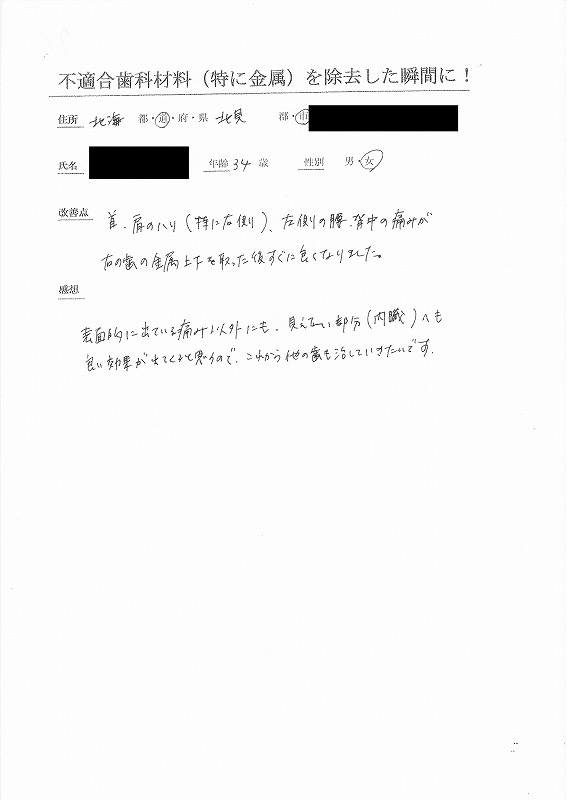 不適合歯科材料（特に金属）を除去した瞬間に！
住所 北海 都・道・府・県 北見 郡・市
氏名 年齢 34 歳 性別 男・女
改善点 首、肩のハリ（特に左側）、左側の腰、背中の痛みが
右の歯の金属上下を取った後すぐに良くなりました。
感想
表面的に出ている痛み以外にも、見えない部分（内臓）へも
良い効果が出てくると思うので、これから他の歯も治していきたいです。